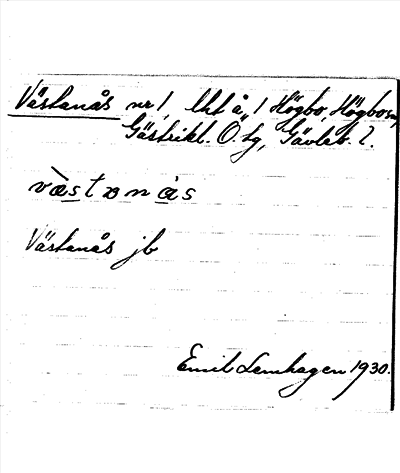 Västanås nr 1, Uhtå, 1 Högbo, Högbo sn,
Gästrikl. Ö. tg, Gävleb. l.
västanås
Västanås jb
Emil Lamhagen 1930.